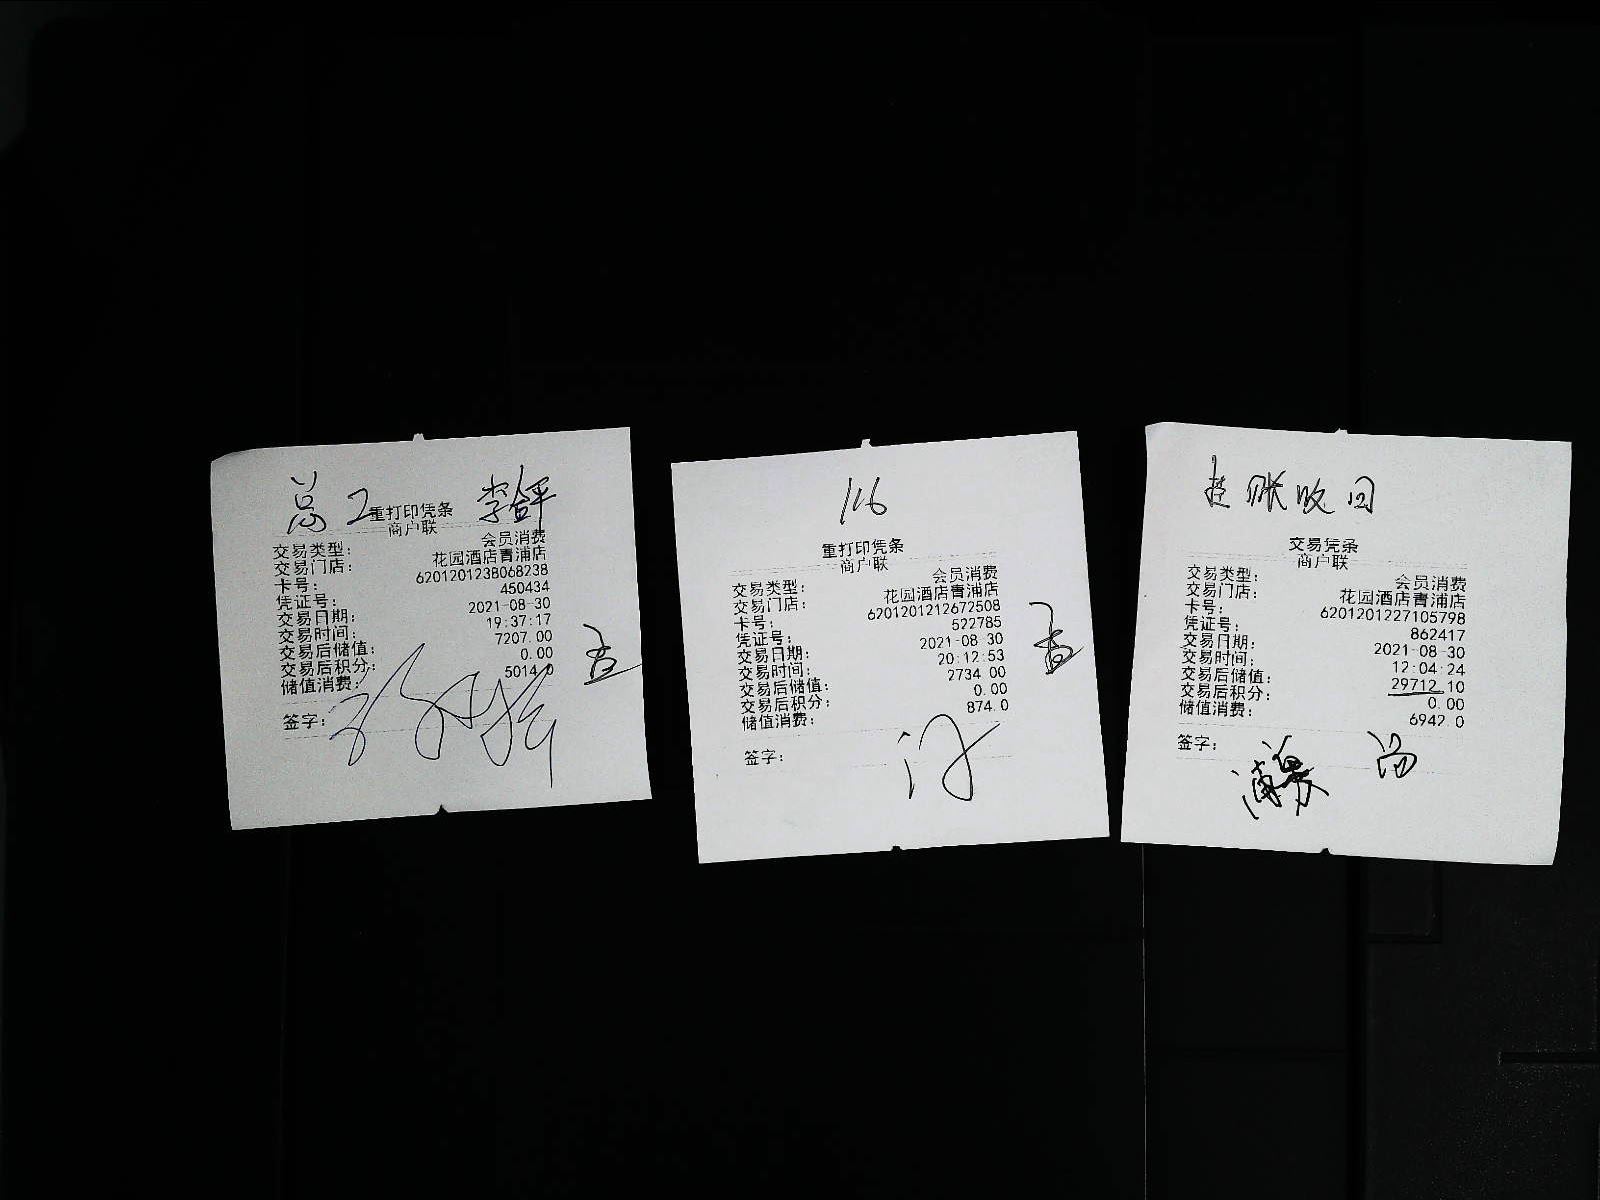 总2 李金平
重打印凭条
商户联
交易类型： 会员消费
交易门店： 花园酒店青浦店
卡号： 6201201238068238
凭证号： 450434
交易日期： 2021-08-30
交易时间： 19:37:17
交易后储值： 7207.00
交易后积分： 0.00
储值消费： 5014.0
签字：
116
重打印凭条
商户联
交易类型： 会员消费
交易门店： 花园酒店青浦店
卡号： 6201201212672508
凭证号： 522785
交易日期： 2021-08-30
交易时间： 20:12:53
交易后储值： 2734.00
交易后积分： 0.00
储值消费： 874.0
签字：
挂账收回
交易凭条
商户联
交易类型： 会员消费
交易门店： 花园酒店青浦店
卡号： 6201201227105798
凭证号： 862417
交易日期： 2021-08-30
交易时间： 12:04:24
交易后储值： 29712.10
交易后积分： 0.00
储值消费： 6942.0
签字：